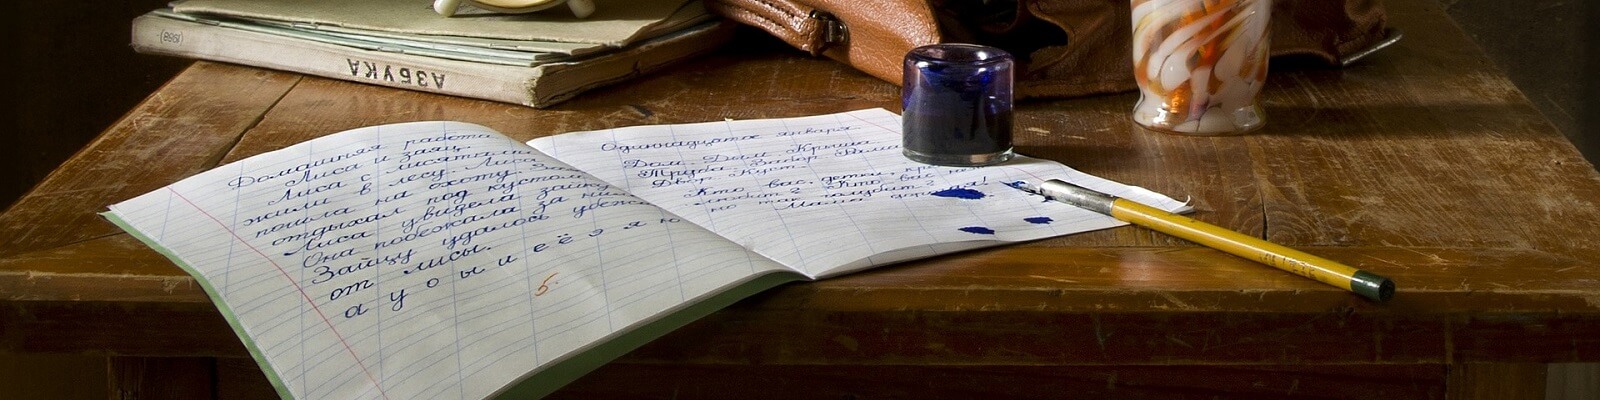 АЗБУКА
Домашняя работа
Лиса и заяц.
Лиса с лисятами
жили в лесу. Лиса
пошла на охоту.
отдыхал под кустом
Лиса увидела зайку.
Она побежала за
Зайцу удалось
от лисы.
а у о ы и е ё э я ю
5.
Одиннадцатое января.
Дом. Дым. Крыша
Труба. Забор.
Двор.
Кто вас, детки,
любит? Кто вас
но так голубит?
Мама